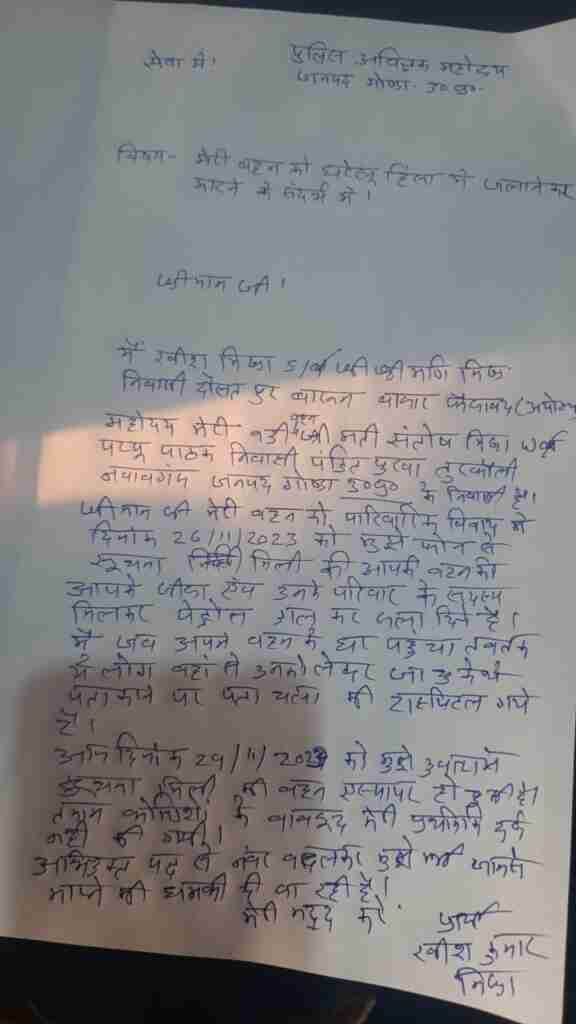 सेवा में!
पुलिस अधिक्षक महोदय
जनपद गोण्डा उ०प्र०
विषय- मेरी बहन को घरेलू हिंसा में जलाने कर
मारने के संदर्भ में!
श्रीमान जी!
में रवीश मिश्रा S/o श्री श्री मणि मिश्र
निवासी दौलत पुर बाजार
महोदय मेरी बड़ी बहन श्री मती संतोष मिश्रा W/o
पप्पू पाठक निवासी पंडित पुरवा तुरकौली
नवाबगंज जनपद गोण्डा उ०प्र० के निवासी है।
श्रीमान जी मेरी बहन को पारिवारिक विवाद में
दिनांक 26/11/2023 को मुझे फोन से
सूचना मिली की आपकी बहन को
आपके जीजा एंव उनके परिवार के सदस्य
मिलकर पेट्रोल डाल कर जला दिये है।
में जब अपने बहन के घर पहुचा तबतक
ये लोग वहां से उनको लेकर जा चुके थे
पता करने पर पता चला की हास्पिटल गये
है।
आज दिनांक 29/11/2023 को मुझे
सूचना मिली की बहन एस्पायर हो चुकी है।
तमाम कोशिशो के बावजूद मेरी दर्ज
नही की गयी।
अभियुक्त पक्ष से नंबर बदलकर मुझे भी जानसे
मारने की धमकी दी जा रही है।
मेरी मदद करे
प्रार्थी
रवीश कुमार
मिश्रा